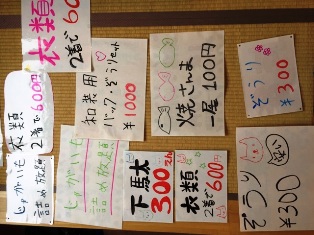 衣類
2着で60
和装用
バック・ぞうりセット
¥1000
焼さんま
一尾100円
ぞうり
¥300
衣類
2着で600円
じゃがいも
詰め放題
じゃがいも
詰め放題
下駄大
300
衣類
2着で600円
ぞうり
¥300